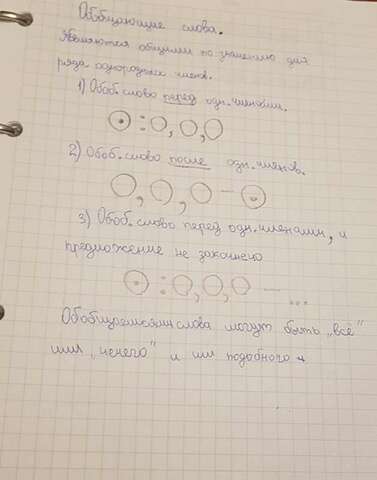 Обобщающие слова.
Являются общими по значению для
ряда однородных членов.
1) Обоб. слово перед одн. членами.
⊙ : ○, ○, ○
2) Обоб. слово после одн. членов.
○, ○, ○ — ⊙
3) Обоб. слово перед одн. членами, и
предложение не закончено
⊙ : ○, ○, ○ — ...
слова могут быть „всё"
или „ничего" и им подобного